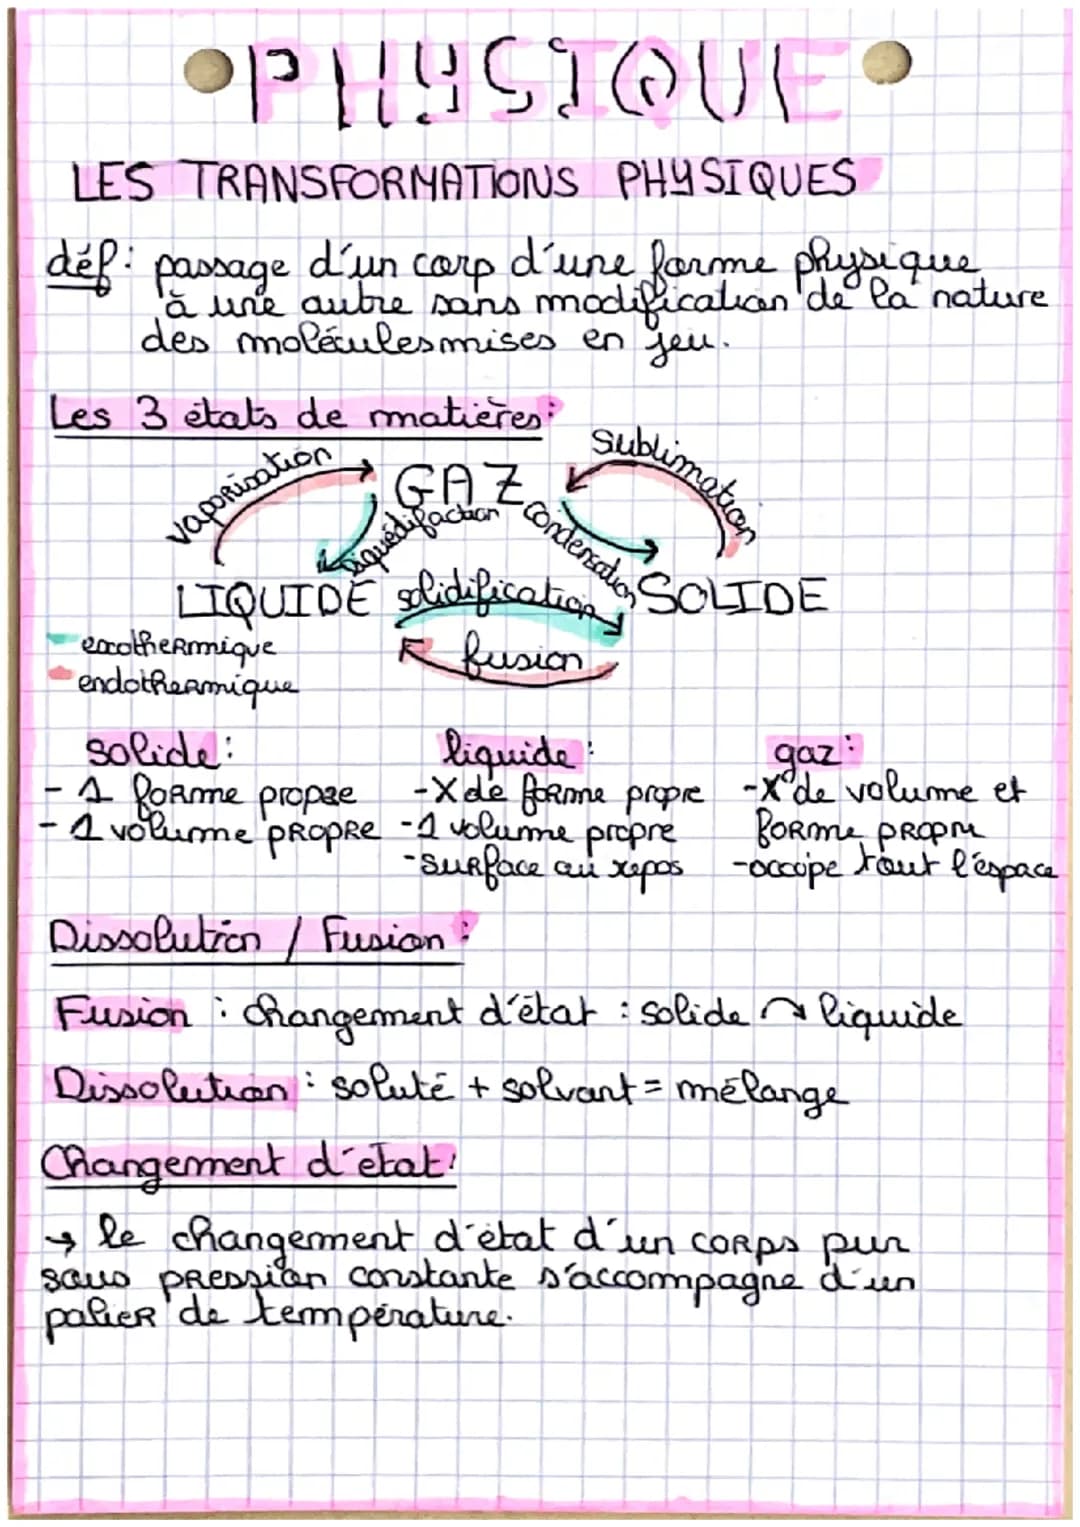 PHYSIQUE
LES TRANSFORMATIONS PHYSIQUES
déf: passage d'un corp d'une forme physique
à une autre sans modification de la nature
des molécules mises en jeu.
Les 3 états de matières:
vaporisation
GAZ
Sublimation
liquédifaction
condensation
LIQUIDE
solidification
SOLIDE
fusion
exothermique
endothermique
solide:
- 1 forme propre
- 1 volume propre
liquide:
-X de forme propre
-1 volume propre
-surface au repos
gaz:
-X de volume et
forme propre
-occupe tout l'espace
Dissolution / Fusion:
Fusion : changement d'état : solide ↷ liquide
Dissolution : soluté + solvant = mélange
Changement d'état:
→ le changement d'état d'un corps pur
sous pression constante s'accompagne d'un
palier de température.